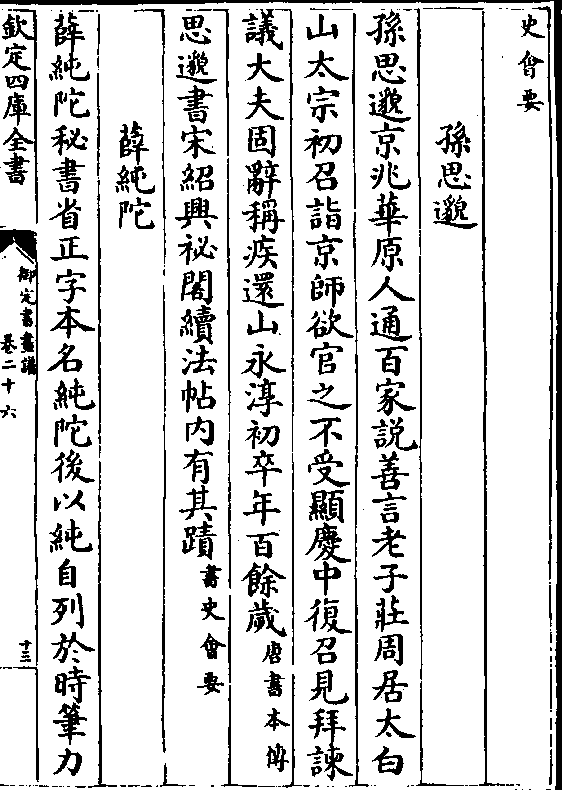 史會要
孫思邈
孫思邈京兆華原人通百家說善言老子莊周居太白
山太宗初召詣京師欲官之不受顯慶中復召見拜諫
議大夫固辭稱疾還山永淳初卒年百餘歲唐書本傳
思邈書宋紹興祕閣續法帖内有其蹟書史會要
薛純陀
薛純陀秘書省正字本名純陀後以純自列於時筆力
欽定四庫全書
御定書畫譜
卷二十六
十三